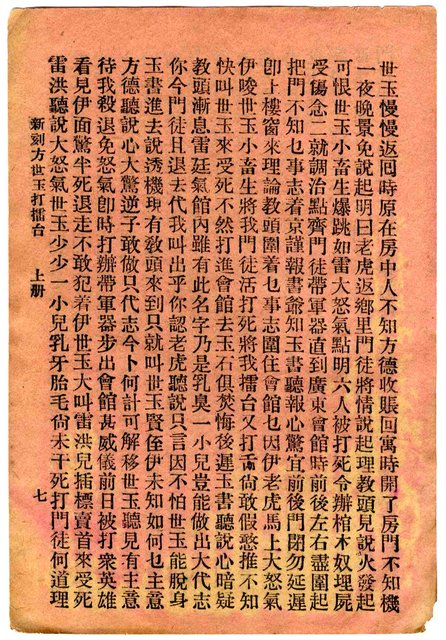 世玉慢慢返囘時原在房中人不知方德收賬回寓時開了房門不知機
一夜晚景免說起明曰老虎返鄉里門徒將情說起理敎頭見說火發起
可恨世玉小畜生爆跳如雷大怒氣點明六人被打死令辦棺木奴埋屍
受傷念二就調治點齊門徒帶軍器直到廣東會館時前後左右盡圍起
把門不知乜事志着京謹報書爺知玉書聽報心驚宜前後門閉勿延遲
卽上樓窗來理論敎頭圍着乜事志圍住會館乜因伊老虎馬上大怒氣
伊唆世玉小畜生將我門徒活打死將我擂台又打吿尙敢假憨推不知
快叫世玉來受死不然打進會館去玉石俱焚悔後遲玉書聽說心暗疑
敎頭漸息雷廷氣館內雖有此名字乃是乳臭一小兒豈能做出大代志
你今門徒且退去代我叫出乎你認老虎聽說只言因不怕世玉能脫身
玉書進去說透機現有敎頭來到只就叫世玉賢侄伊未知如何乜主意
方德聽說心大驚逆子敢做只代志今卜何計可解移世玉聽見有主意
待我殺退免怒氣卽時打辦帶軍器步出會館甚威儀前日被打衆英雄
看見伊面驚半死退走不敢犯着伊世玉大叫雷洪兒插標賣首來受死
雷洪聽說大怒氣世玉少少一小兒乳牙胎毛尙未干死打門徒何道理
新刻方世玉打擂台　上册　七